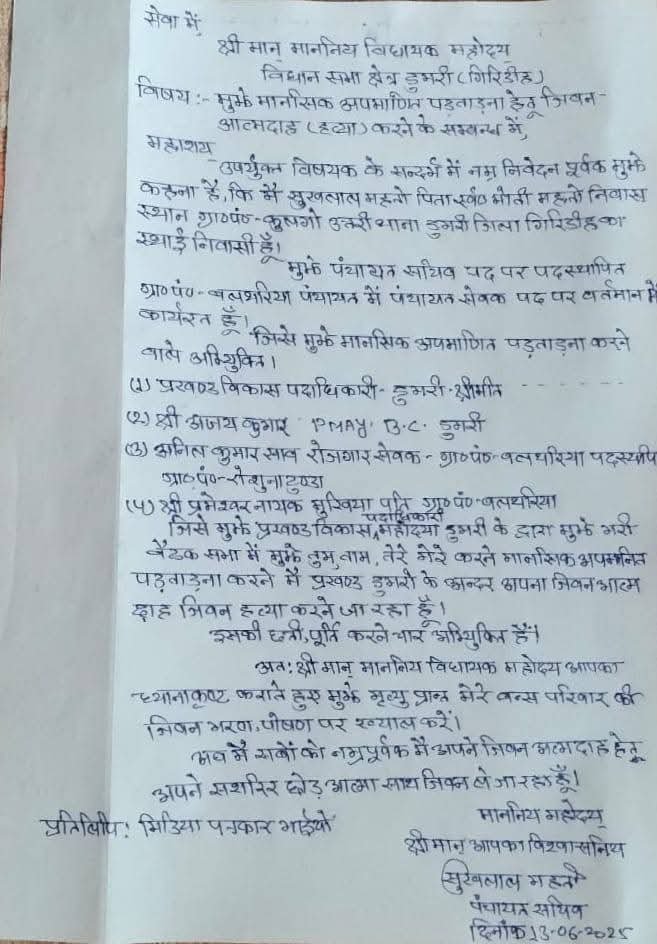 सेवा में,
श्री मान् माननिय विधायक महोदय्
विधान सभा क्षेत्र डुमरी (गिरिडीह)
विषय :- मुझे मानसिक अपमाणित पड़ताड़ना हेतू जिवन-
आत्मदाह (हत्या) करने के सम्बन्ध में,
महाशय्
उपर्युक्त विषयक के सन्दर्भ में नम्र निवेदन पूर्वक मुझे
कहना है, कि मै सुखलाल महतो पिता स्व० मोती महतो निवास
स्थान ग्रा०पं०- कुलगो उत्तरी थाना डुमरी जिला गिरिडीह का
स्थाई निवासी हूँ।
मुझे पंचायत सचिव पद पर पदस्थापित
ग्रा०पं०- बलथरिया पंचायत में पंचायत सेवक पद पर वर्तमान में
कार्यरत हूँ।
जिसे मुझे मानसिक अपमाणित पड़ताड़ना करने
वाले अभियुक्ति।
(1) प्रखण्ड विकास पदाधिकारी- डुमरी- श्रीमति - - - - - -
(2) श्री अजय कुमार PMAY. B.C. डुमरी
(3) अनिल कुमार साव रोजगार सेवक- ग्रा०पं०- बलथरिया पदस्थापि
ग्रा०पं०- रोशनाटुण्डा
(4) श्री प्रमेश्वर नायक मुखिया पति ग्रा०पं०- बलथरिया
जिसे मुझे प्रखण्ड विकास पदाधिकारी महोदया डुमरी के द्वारा मुझे भरी
बैठक सभा में मुझे तुम, ताम, तेरे मेरे करते मानसिक अपमानित
पड़ताड़ना करने में प्रखण्ड डुमरी के अन्दर अपना जिवन आत्म
दाह जिवन हत्या करने जा रहा हूँ।
इसकी छती, पूर्ति करने चार अभियुक्ति हैं।
अत: श्री मान् माननिय विधायक महोदय आपका
ध्यानाकृष्ट कराते हुए मुझे मृत्यु प्राप्त मेरे वन्स परिवार की
जिवन भरण, पोषण पर ख्याल करें।
अब मैं सबों को नम्रपूर्वक मै अपने जिवन आत्मदाह हेतू
अपने सशरिर छोड़ आत्मा साथ जिवन ले जा रहा हूँ।
माननिय महोदय्
प्रतिलिपि: मिडिया पत्रकार भाईयों
श्री मान् आपका विश्वासनिय
सुखलाल महतो
पंचायत सचिव
दिनांक 13-06-2025